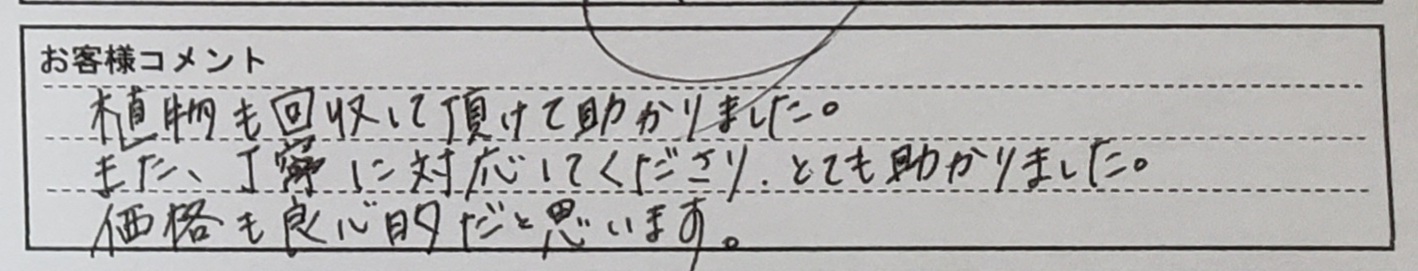 お客様コメント
植物も回収して頂けて助かりました。
また、丁寧に対応してくださり、とても助かりました。
価格も良心的だと思います。